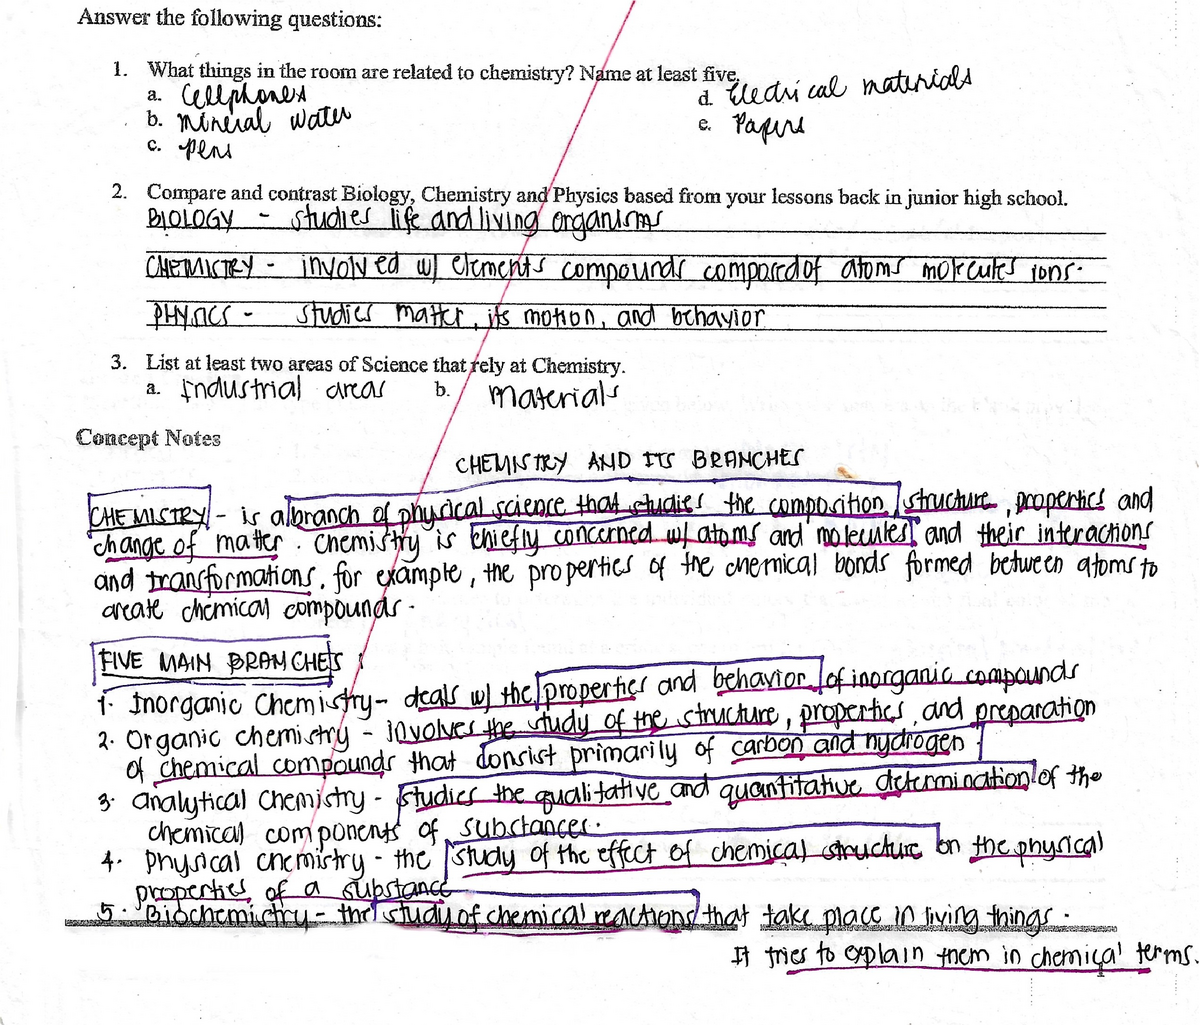 Answer the following questions:
1. What things in the room are related to chemistry? Name at least five.
a. Cellphones
d. Electrical materials
b. mineral water
e. Papers
c. pens
2. Compare and contrast Biology, Chemistry and Physics based from your lessons back in junior high school.
BIOLOGY - studies life and living organisms
CHEMISTRY - involved w/ elements compounds composed of atoms molecules ions.
PHYSICS - studies matter, its motion, and behavior
3. List at least two areas of Science that rely at Chemistry.
a. Industrial areas b. materials
Concept Notes
CHEMISTRY AND ITS BRANCHES
CHEMISTRY - is a branch of physical science that studies the composition, structure, properties and
change of matter. Chemistry is chiefly concerned w/ atoms and molecules and their interactions
and transformations, for example, the properties of the chemical bonds formed between atoms to
create chemical compounds.
FIVE MAIN BRANCHES
1. Inorganic Chemistry - deals w/ the properties and behavior of inorganic compounds
2. Organic chemistry - involves the study of the structure, properties, and preparation
of chemical compounds that consist primarily of carbon and hydrogen
3. Analytical Chemistry - studies the qualitative and quantitative determination of the
chemical components of substances.
4. Physical chemistry - the study of the effect of chemical structure on the physical
properties of a substance
5. Biochemistry - the study of chemical reactions that take place in living things.
It tries to explain them in chemical terms.